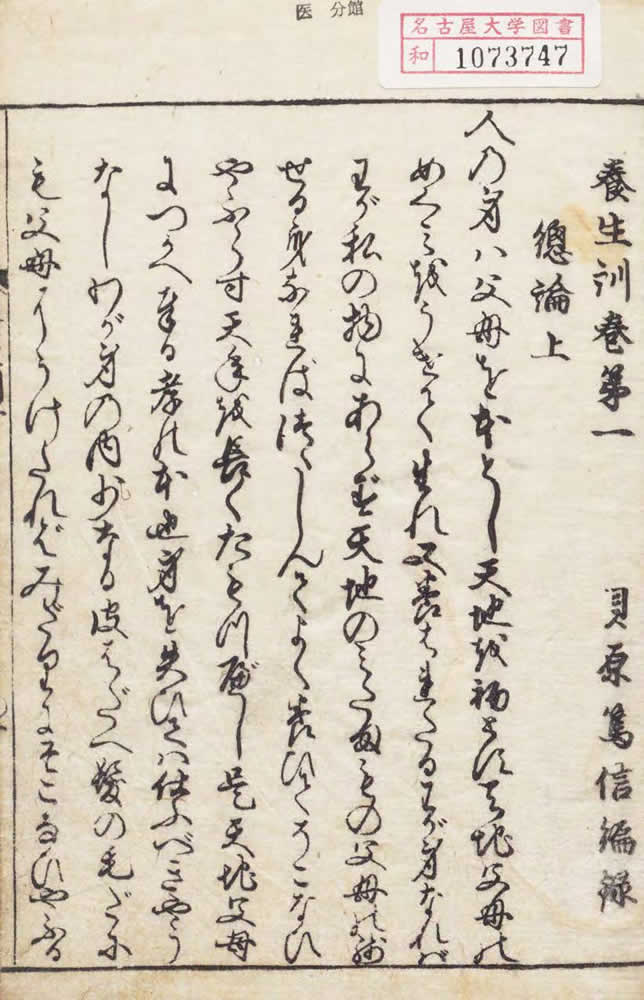 医 分館
名古屋大学図書
和 1073747
養生訓巻第一
貝原篤信編録
總論上
人の身ハ父母を本とし天地を初とす天地父母の
めぐみをうけて生れ又養はれたるわが身なれバ
わが私の物にあらず天地のみたまもの父母の残
せる身なれば つゝしんでよく養ひてそこなひ
やぶらず天年を長くたもつべし是天地父母
につかへ奉る孝の本也身を失ひてハ仕ふべきやう
なしわが身の内少なる皮はだへ髪の毛だに
も父母にうけたればみだりにそこなひやぶる